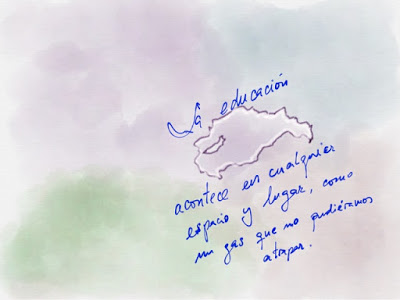 La educación
acontece en cualquier
espacio y lugar, como
un gas que no pudiéramos
atrapar.